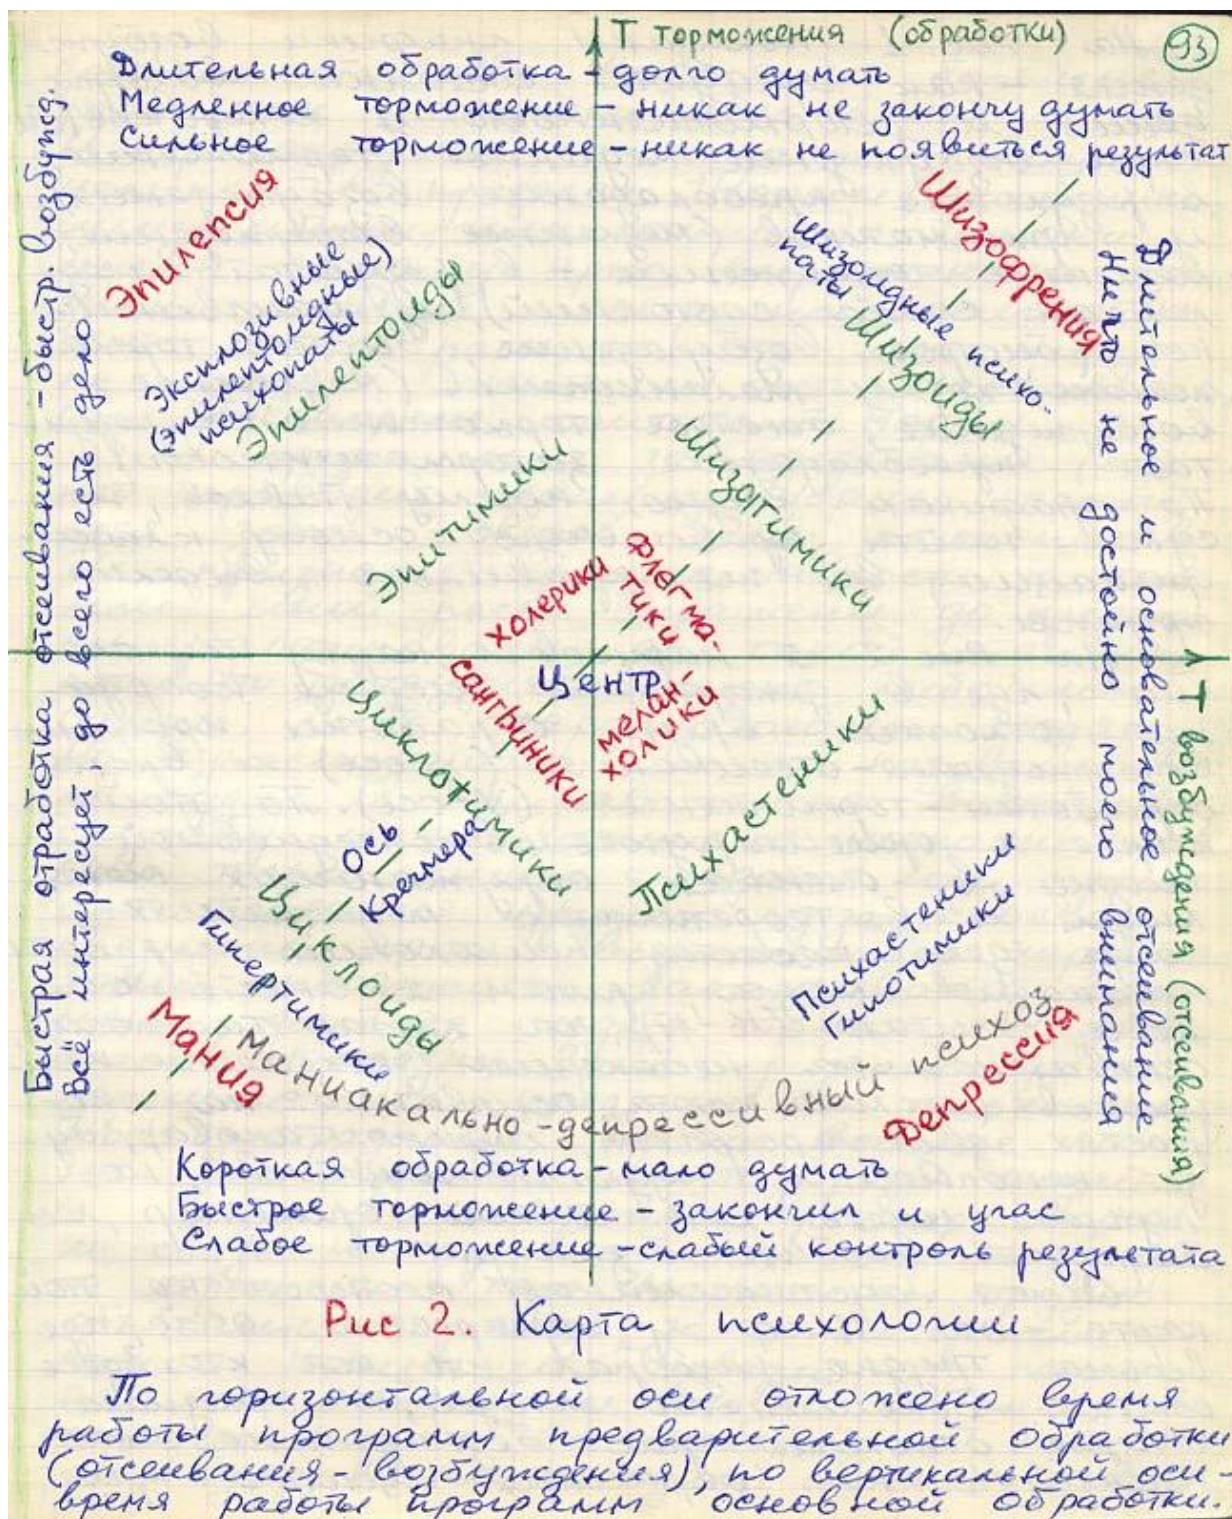 Т торможения (обработки)
93
Длительная обработка - долго думать
Медленное торможение - никак не закончу думать
Сильное торможение - никак не появиться результат
Быстрая отработка отсеивания - быстр. возбужд.
Всё интересует, до всего есть дело
Эпилепсия
Эксплозивные
(эпилептоидные)
психопаты
Эпилептоиды
Эпитимики
холерики
Шизофрения
Шизоидные психо-
паты
Шизоиды
Шизотимики
флегма-
тики
Длительное и основательное отсеивание
Ничто не достойно моего внимания
Т возбуждения (отсеивания)
Центр
сангвиники
Циклотимики
Ось
Кречмера
Циклоиды
Гипертимики
Мания
мелан-
холики
Психастеники
Психастеники
Гипотимики
Маниакально-депрессивный психоз
Депрессия
Короткая обработка - мало думать
Быстрое торможение - закончил и угас
Слабое торможение - слабый контроль результата
Рис 2. Карта психологии
По горизонтальной оси отложено время
работы программ предварительной обработки
(отсеивания - возбуждения), по вертикальной оси -
время работы программ основной обработки.